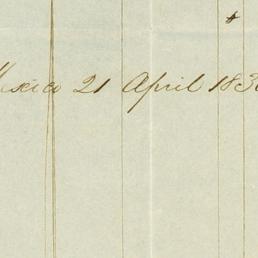 Mexico 21 April 183